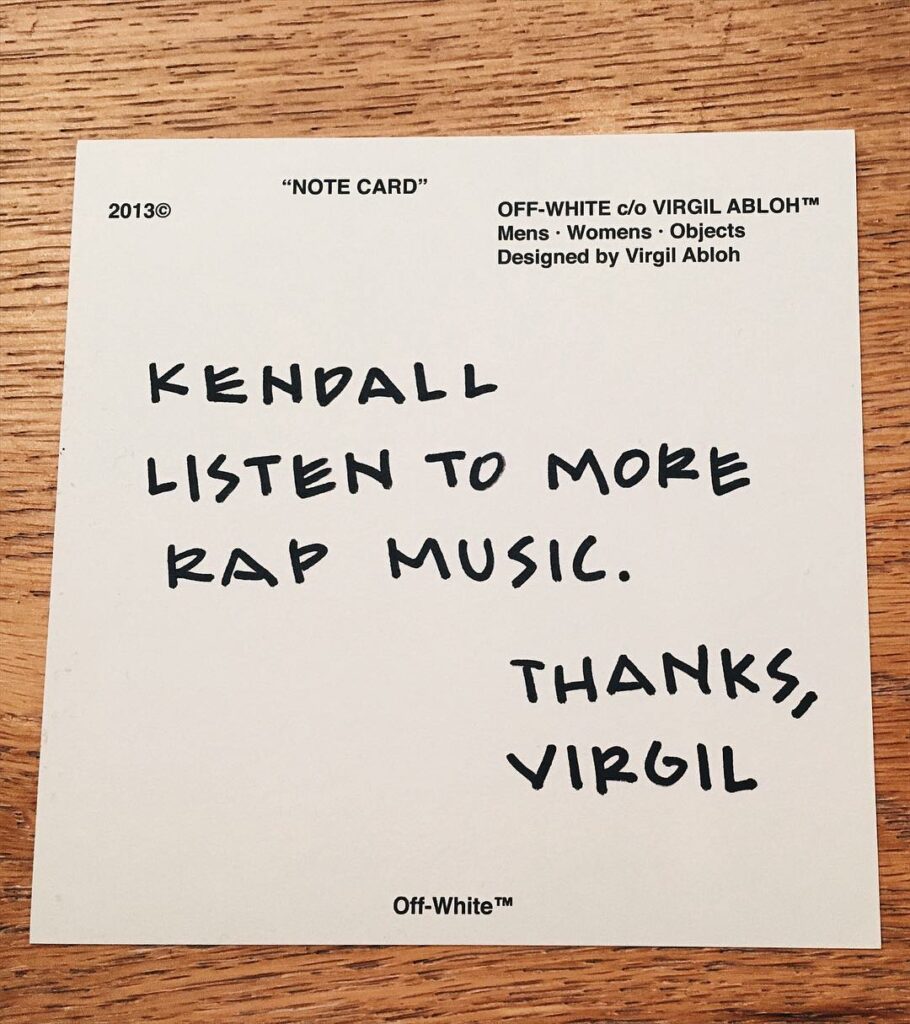 “NOTE CARD”
2013©
OFF-WHITE c/o VIRGIL ABLOH™
Mens · Womens · Objects
Designed by Virgil Abloh
KENDALL
LISTEN TO MORE
RAP MUSIC.
THANKS,
VIRGIL
Off-White™